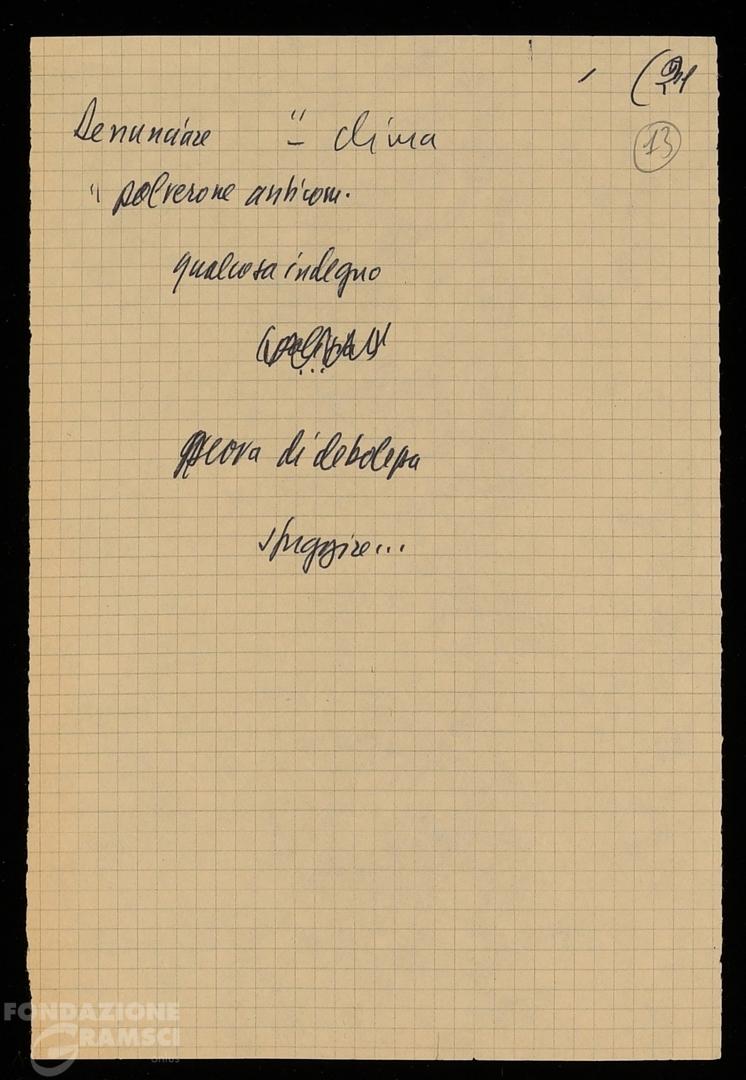 13
Denunciare " - clima
" polverone anticom.
qualcosa indegno
prova di debolezza
sfuggire...
FONDAZIONE
GRAMSCI
onlus